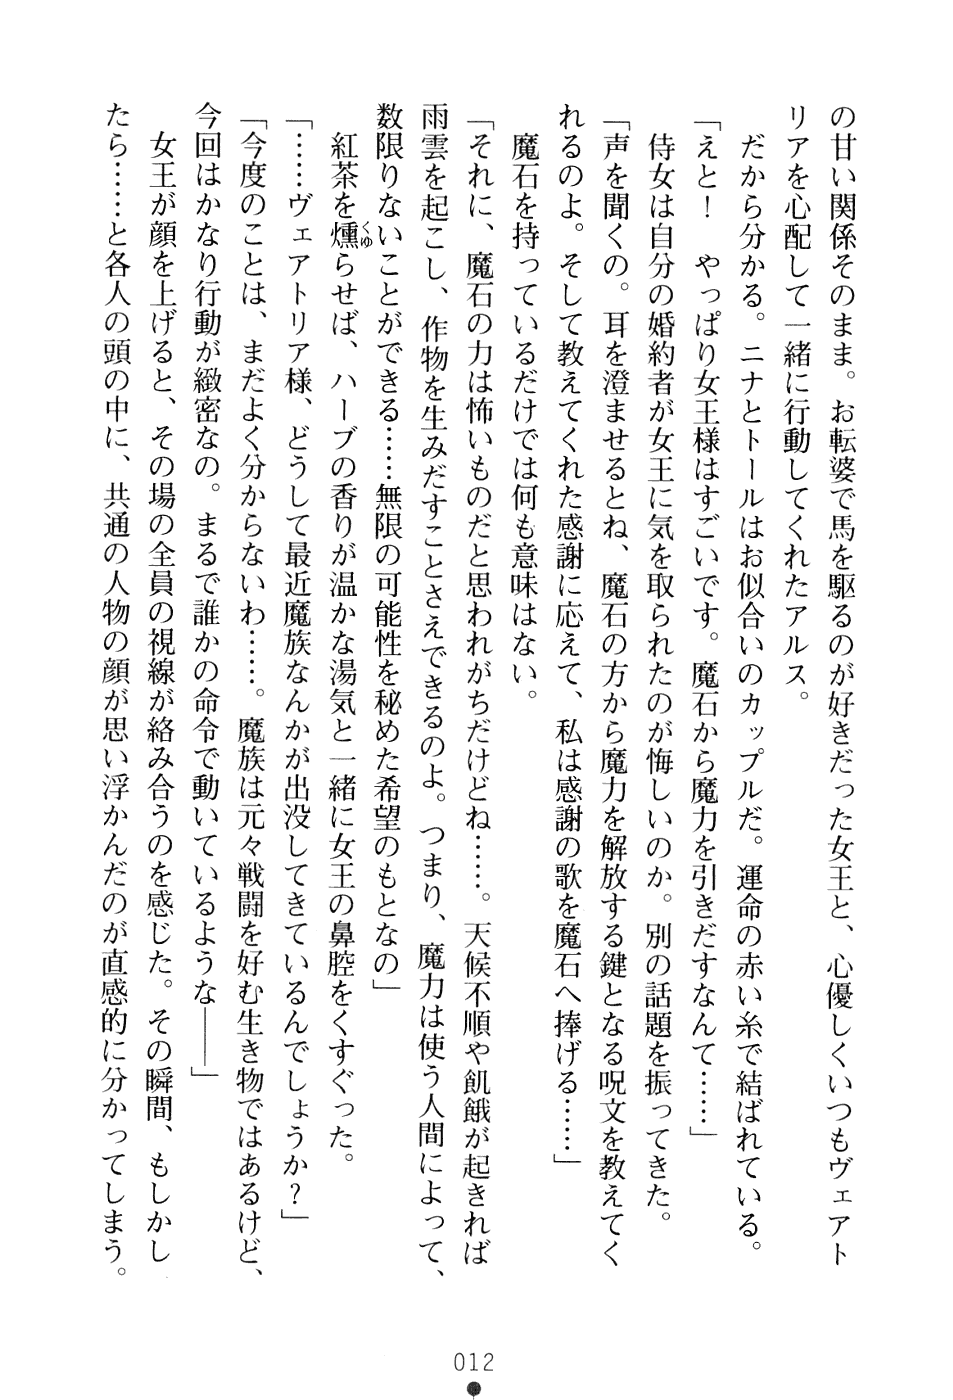 の甘い関係そのまま。お転婆で馬を駆るのが好きだった女王と、心優しくいつもヴェアト
リアを心配して一緒に行動してくれたアルス。
　だから分かる。ニナとトールはお似合いのカップルだ。運命の赤い糸で結ばれている。
「えと！　やっぱり女王様はすごいです。魔石から魔力を引きだすなんて……」
　侍女は自分の婚約者が女王に気を取られたのが悔しいのか。別の話題を振ってきた。
「声を聞くの。耳を澄ませるとね、魔石の方から魔力を解放する鍵となる呪文を教えてく
れるのよ。そして教えてくれた感謝に応えて、私は感謝の歌を魔石へ捧げる……」
　魔石を持っているだけでは何も意味はない。
「それに、魔石の力は怖いものだと思われがちだけどね……。天候不順や飢餓が起きれば
雨雲を起こし、作物を生みだすことさえできるのよ。つまり、魔力は使う人間によって、
数限りないことができる……無限の可能性を秘めた希望のもとなの」
　紅茶を燻らせば、ハーブの香りが温かな湯気と一緒に女王の鼻腔をくすぐった。
くゆ
「……ヴェアトリア様、どうして最近魔族なんかが出没してきているんでしょうか？」
「今度のことは、まだよく分からないわ……。魔族は元々戦闘を好む生き物ではあるけど、
今回はかなり行動が緻密なの。まるで誰かの命令で動いているような――」
　女王が顔を上げると、その場の全員の視線が絡み合うのを感じた。その瞬間、もしかし
たら……と各人の頭の中に、共通の人物の顔が思い浮かんだのが直感的に分かってしまう。
012